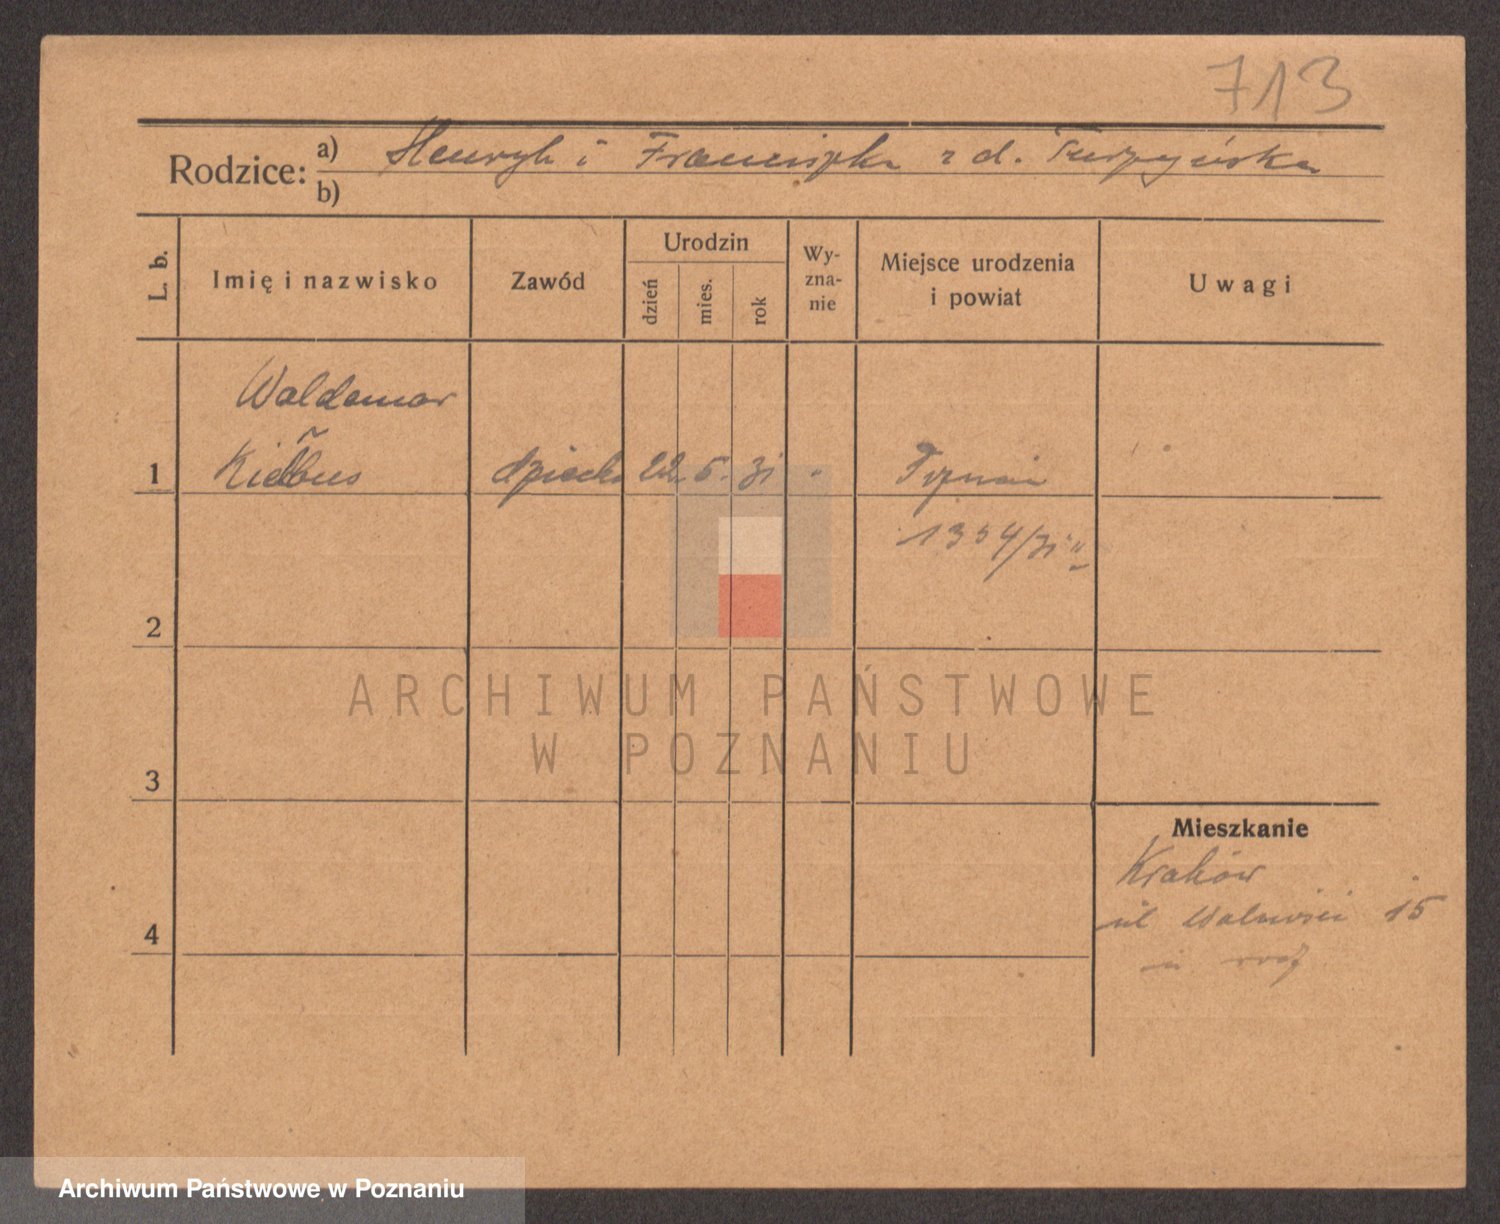 713
Rodzice: a) Henryk i Franciszka z d.
b)
L. b.
Imię i nazwisko
Zawód
Urodzin
dzień
mies.
rok
Wy-
zna-
nie
Miejsce urodzenia
i powiat
Uwagi
Waldemar
1 Kiełbus dziecko 22. 5. 31
1354/31
2
ARCHIWUM PAŃSTWOWE
W POZNANIU
3
Mieszkanie
Kraków
ul 15
4
Archiwum Państwowe w Poznaniu